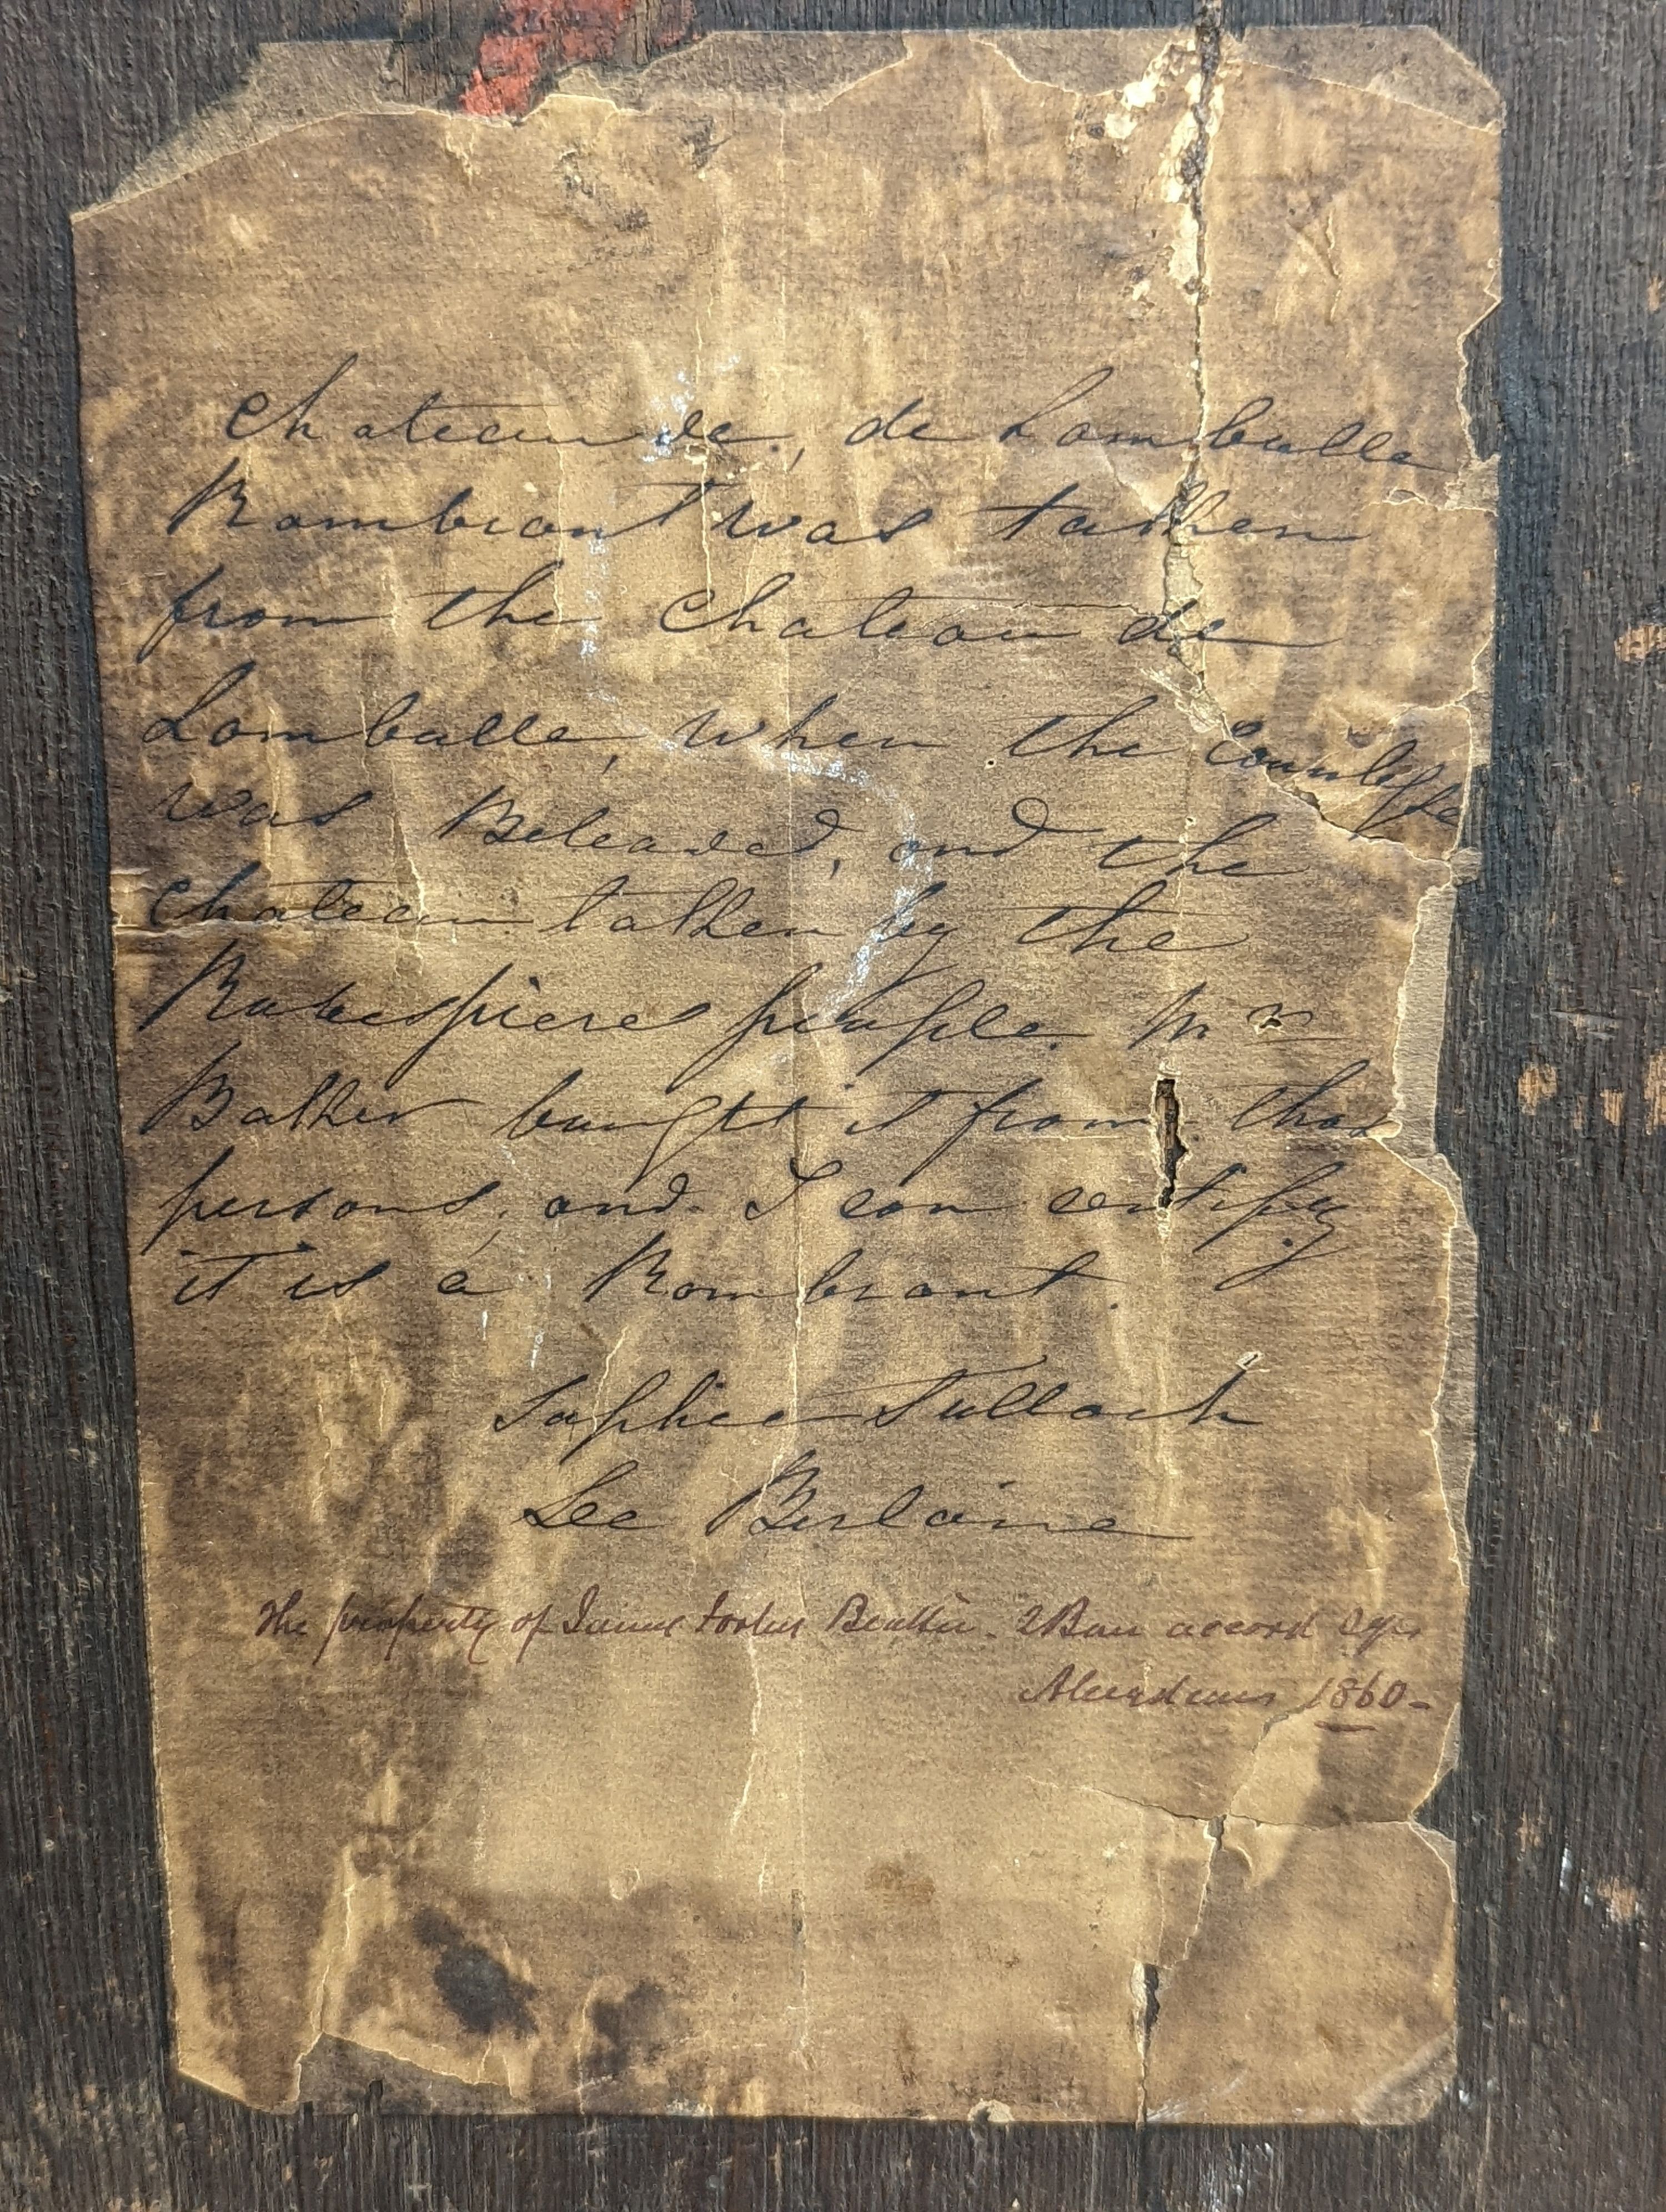 Chateau de, de Lamballe
Rombrant was takken
from the Chateau de
Lamballe, when the Countesse
was Beleaded, and the
Chateau takken by the
Robespieres people. Mr
Bakker bought it from thos
persons, and I can certifiy
it is a Rombrant.
Sophie Tulloch
See Berlaine
The property of James Forbes Beattie. 2 Bon accord Sqr
Aberdeen 1860